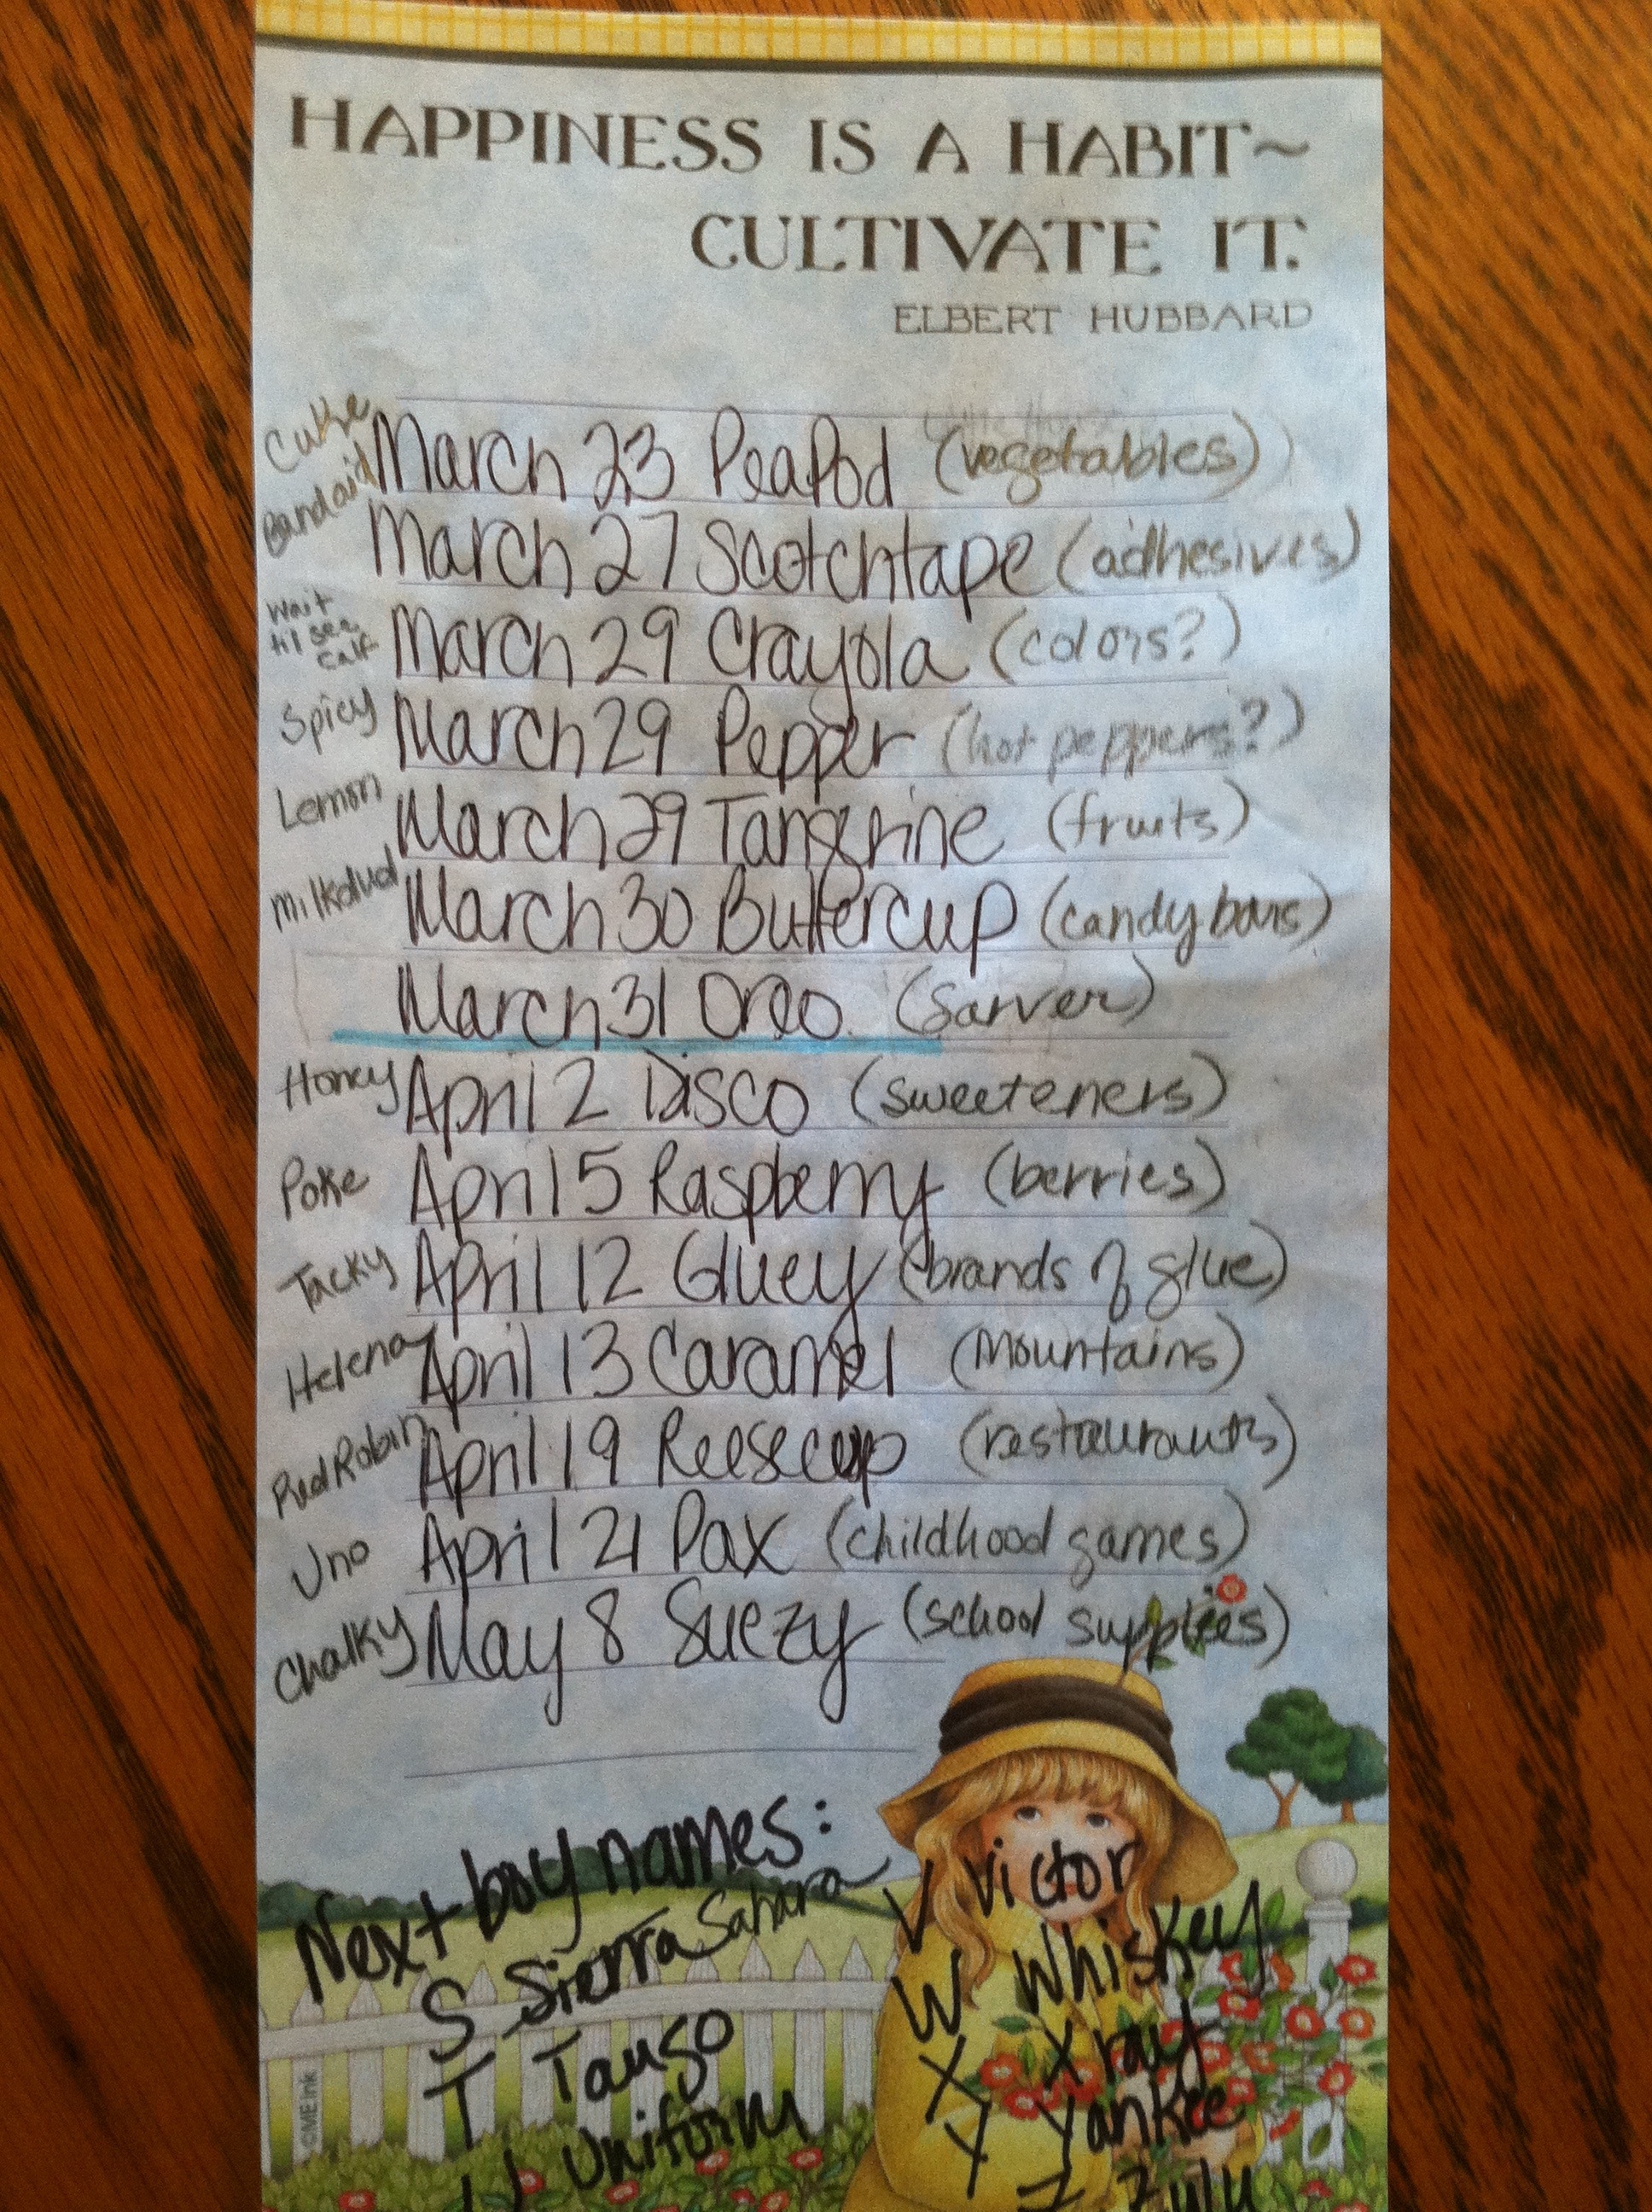 HAPPINESS IS A HABIT~
CULTIVATE IT.
ELBERT HUBBARD
Cuke March 23 PeaPod (vegetables)
Bandaid March 27 Scotchtape (adhesives)
Wait til see calf March 29 Crayola (colors?)
Spicy March 29 Pepper (hot peppers?)
Lemon March 29 Tangerine (fruits)
Milkdud March 30 Buttercup (candy bars)
March 31 Oreo (Sarver)
Honey April 2 Disco (sweeteners)
Poke April 5 Raspberry (berries)
Tacky April 12 Gluey (brands of glue)
Helena April 13 Caramel (Mountains)
Red Robin April 19 Reesecup (restaurants)
Uno April 21 Pax (childhood games)
Chalky May 8 Suezy (school supplies)
Next boy names:
S Sierra Sahara
T Tango
U Uniform
V Victor
W Whiskey
X Xray
Y Yankee
Z Zulu
©ME Ink